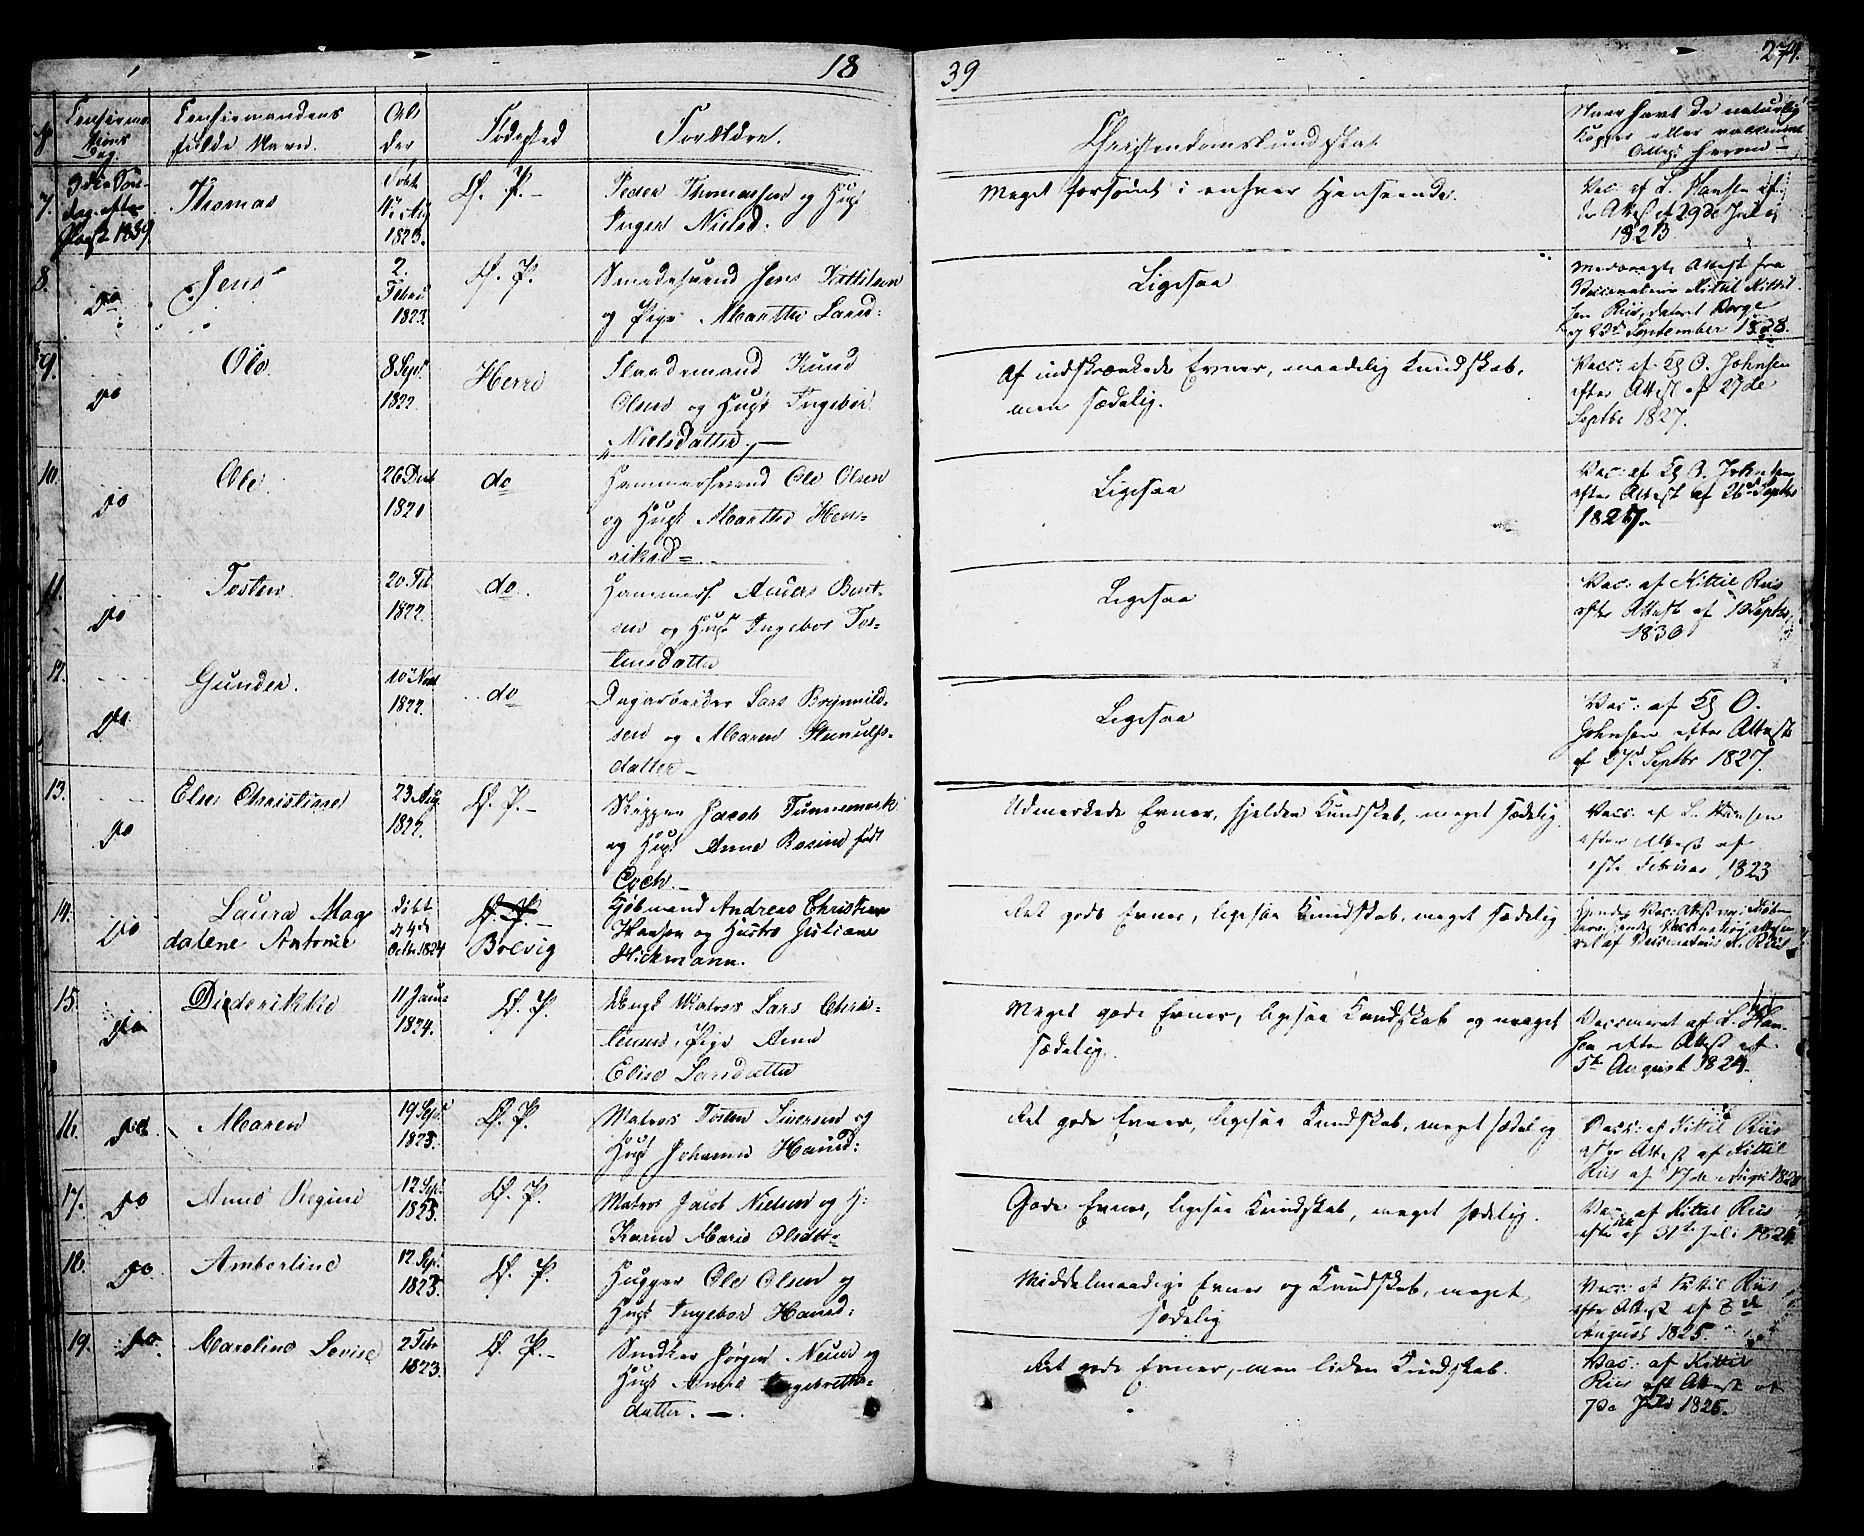 18
39
274.
Confirmandens
fulde Navn.
Al
der
Fødested
Forældre.
Christendomskundskab
Hvor havt de naturlig
Kopper eller vaccineret
7.
3die Søn-
dag efter
Paaske 1839
Thomas
Døbt
1823.
L. P.
Peder Thomassen og Hust
Inger Nielsd.
Meget forsømt i enhver Henseende.
Vac. af L. Hansen ef-
ter Attest af 29de Juli
1823
8.
do
Jens
2.
Febru
1823.
L. P.
Smedesvend Jens Kittilsen
og Pige Marthe Larsd:
Ligesaa
Medbragte Attest fra
Vaccinateur Kittil Kittel-
sen Riis, dateret Borge
September 1828.
9.
do
Ole
8 Sept.
1822
Herre
Strandemand Knud
Olsen og Hust Ingebor
Nielsdatter.
Af indskrænkede Evner, maadelig Kundskab,
men sædelig.
Vacc: af O. Johnsen
efter Attest af 27de
Septbr 1827.
10.
do
Ole
26
1821
do
Hammersvend Ole Olsen
og Hust Marthe Hen-
riksd
Ligesaa
Vac. af O. Johnsen
efter Attest af 26 Septbr
1827.
11.
do
Tosten
20. Feb.
1822.
do
Hammers Anders Bent-
sen og Hust Ingebor Tos-
tensdatter
Ligesaa
Vac: af Kittil Riis
efter Attest af 13 Septbr
1830
12.
do
Gunder.
10 Novb
1822.
do
Dagarbeider Lars Brynild-
sen og Maren
datter
Ligesaa
Vac: af O.
Johnsen efter Attest
af 27d Septbr 1827.
13.
do
Else Christiane
23 Aug
1822.
L. P.
Skipper Jacob Tunnemark
og Hust Anne Rosine født
Coch.
Udmerkede Evner, sjelden Kundskab, meget sædelig.
Vacc: af L. Hansen
efter Attest af
Februar 1823
14.
do
Laura Mag
dalene Antonie
Døbt
d 4de
Octbr. 1824
L. P.
Brevig
Kjøbmand Andreas Christian
Hansen og Hustro Juliane
Hickmann.
Ret gode Evner, ligesaa Kundskab, meget sædelig
15.
do
Diderikke
11 Janu-
1824.
L. P.
Ungk. Matros Lars Chris-
tensen, Pige Anne
Elise Larsdatter
Meget gode Evner, ligesaa Kundskab og meget
sædelig.
Vaccineret af L. Han-
sen efter Attest af
5te August 1824.
16.
do
Maren
19 Sept
1823.
L. P.
Matros Tosten Sivertsen og
Hust Johanne Hansd:
Ret gode Evner, ligesaa Kundskab, meget sædelig
Vacc: af Kittil Riis
efter Attest af Kittil
Riis af 17de
17.
do
Anne Regine
12 Sep.
1823.
L. P.
Matros Jacob Nielsen og H:
Karen Marie Olsdtr
Gode Evner, ligesaa Kundskab, meget sædelig.
Vac: af Kittil Riis
efter af 31te Juli 1824
18.
do
Amberline
12 Sep.
1823.
L. P.
Hugger Ole Olsen og
Hust Ingebor Hansd:
Middelmaadige Evner og Kundskab, meget
sædelig
Vac: af Kittil Riis
efter Attest af 3d
August 1825.
19.
do
Caroline Lovise
2 Febr
1823.
L. P.
Snedker Jørgen
Hust Anne Ingebreths-
datter.
Ret gode Evner, men liden Kundskab.
Vac: af Kittil
Riis eft Attest af
7de Juli 1825.